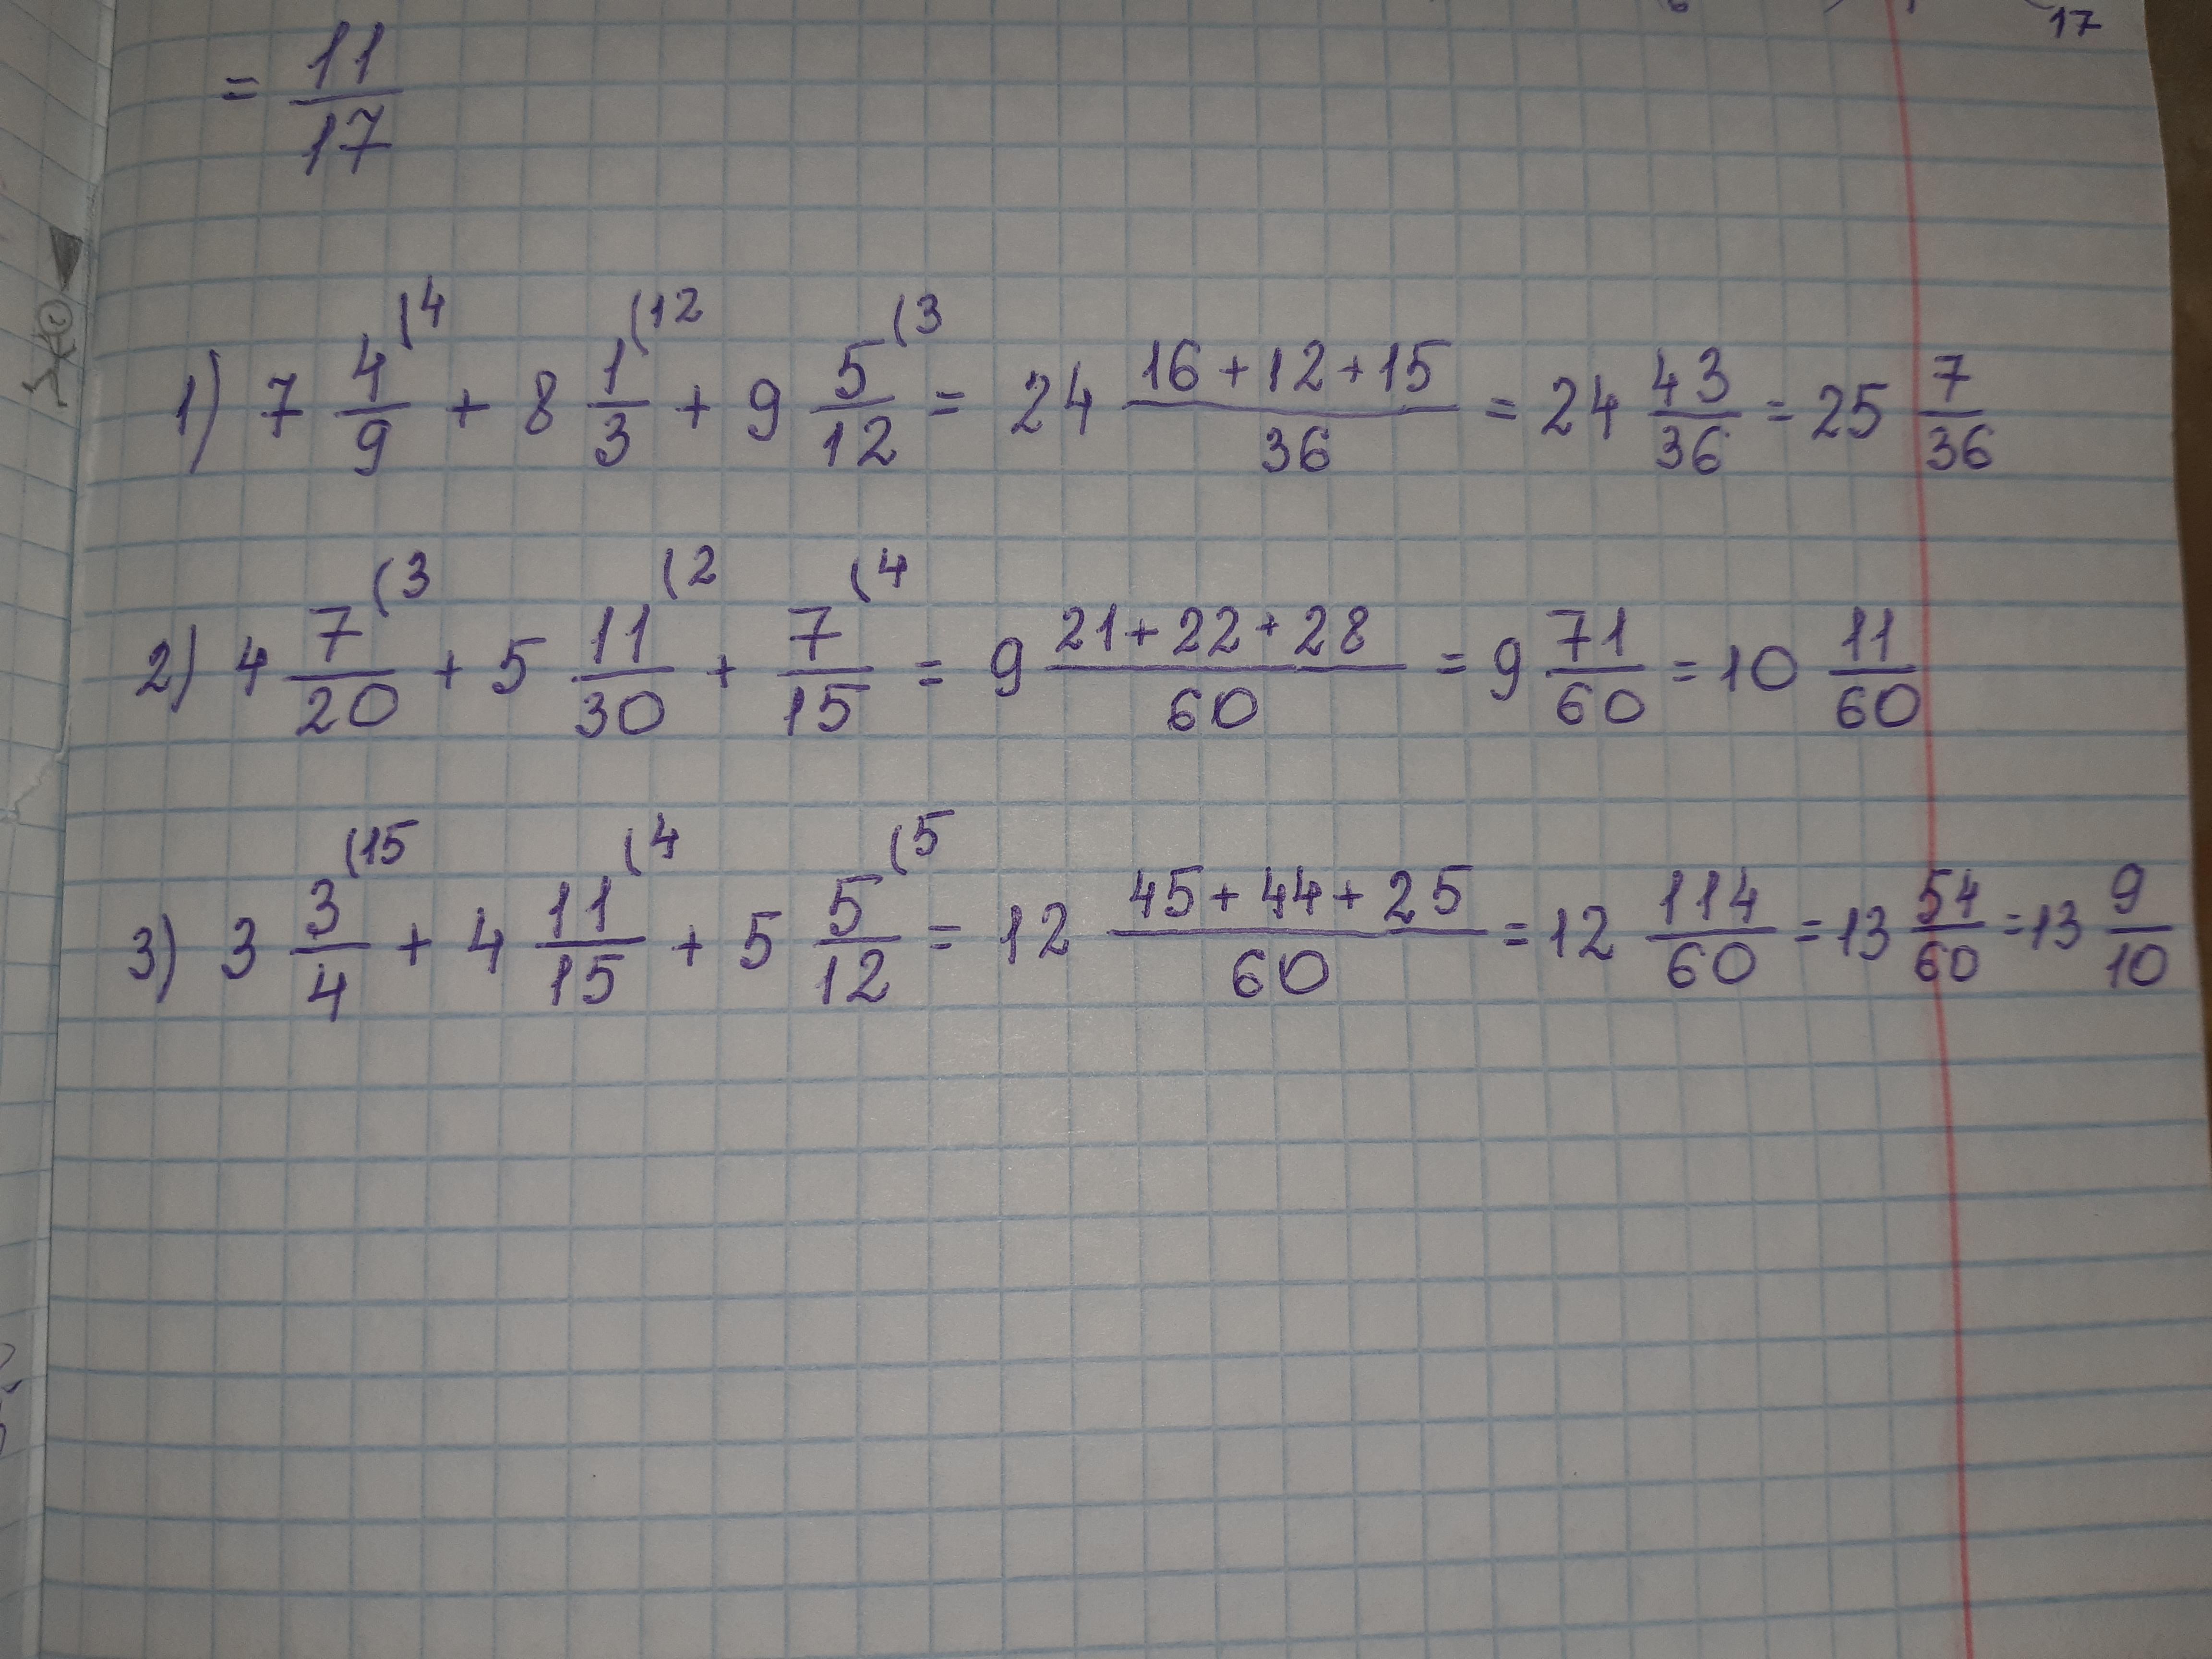 17
= 11/17
1) 7 4/9 (4 + 8 1/3 (12 + 9 5/12 (3 = 24 16+12+15/36 = 24 43/36 = 25 7/36
2) 4 7/20 (3 + 5 11/30 (2 + 7/15 (4 = 9 21+22+28/60 = 9 71/60 = 10 11/60
3) 3 3/4 (15 + 4 11/15 (4 + 5 5/12 (5 = 12 45+44+25/60 = 12 114/60 = 13 54/60 = 13 9/10